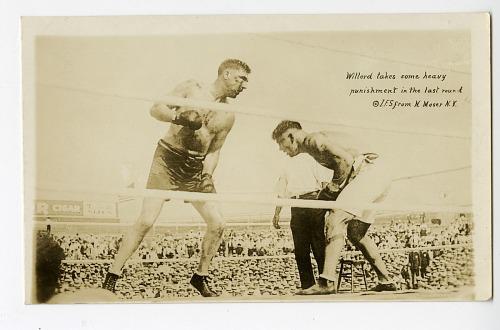 Willard takes some heavy
punishment in the last round
© I.F.S. from W. Moser N.Y.
CIGAR